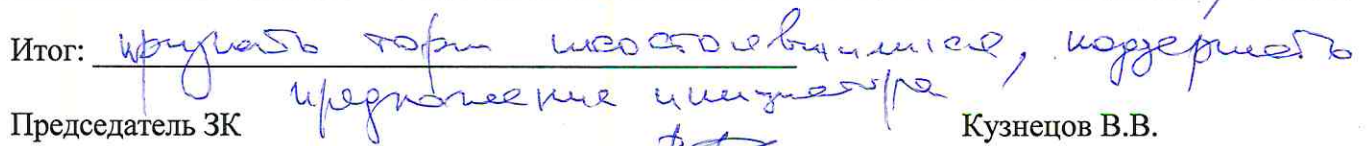 Итог: признать торги несостоявшимися, поддержать
предложение инициатора
Председатель ЗК Кузнецов В.В.